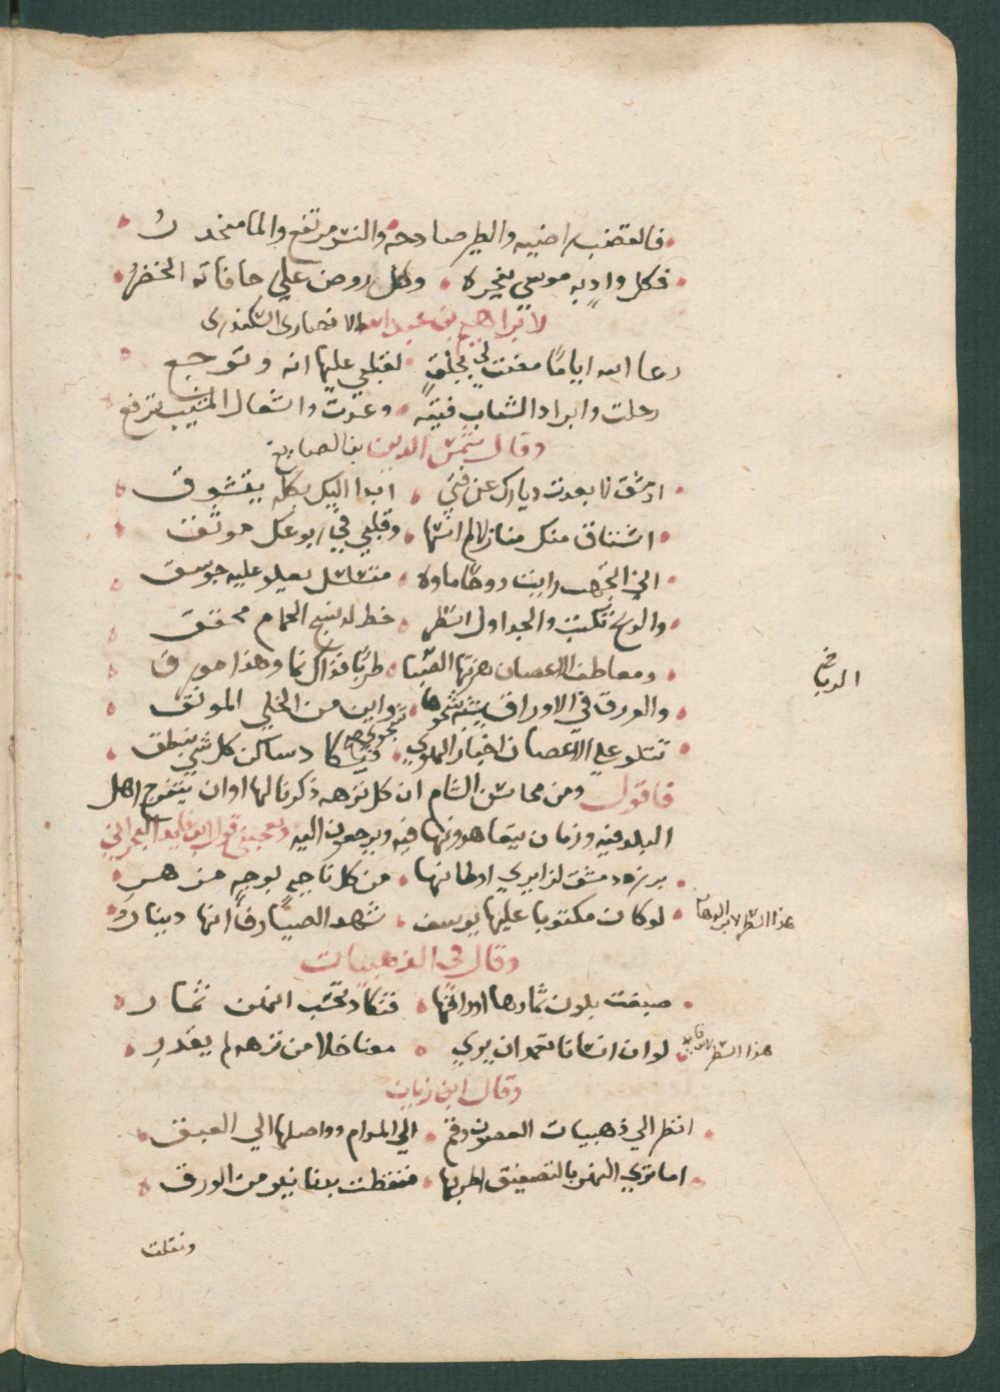 فالقضب راضيه والطير صادحه والنشر مرتفع والما منحدر
فكل واد به موسى يفجره وكل روض على حافاته الخضر
لابراهيم بن عبد الله الانصارى السكندرى
رعا الله اياما مضت لي بجلق لقلبي عليها انه وتوجع
رحلت وابراد الشباب قشيبة وعدت واسمال المشيب ترقع
وقال شمس الدين بن الصايغ
ادمشق لا بعدت ديارك عن فتي ابدا اليك بكله يتشوق
اشتاق منك منازلا لم انسها وقلبي في ربوعك موثق
اني اتجهت رايت دوحا ماوه متسلسل يعلو عليه جوسق
والريح تكتب والجداول اسطر خط له نسج الغمام محقق
ومعاطف الاغصان هزتها الصبا طربا فذاك نما وهذا مورق
والورق في الاوراق يشبه شجوها شجوي واين من الخلي الموثق
تتلو على الاغصان اخبار الهوي فيكاد ساكن كل شي ينطق
فاقول ومن محاسن الشام ان كل نزهه ذكرنالها اوان يتفرج اهل
البلد فيه وزمان يتعاهدونها فيه ويرجعون اليه ويعجبني قول ابن
برزت دمشق لزايري اوطانها من كل ناحيه بوجه مزهر
لو كان مكتوبا عليها يوسف شهد الصيارف انها دينار
وقال في الذهبيات
صبغت بلون ثمارها اوراقها فتكاد تحسب انهن ثمار
لو ان انسانا تعمد ان يري معنا خلا من نزهه لم يقدر
وقال ابن
انظر الي ذهبيات الغصون وقم الي المرام وواصلها الي الغبق
اما تري النهر بالتصفيق اطربها فنقطته بدنانير من الورق
ونقلت
الرياض
هذا الشطر لابن
هذا الشطر